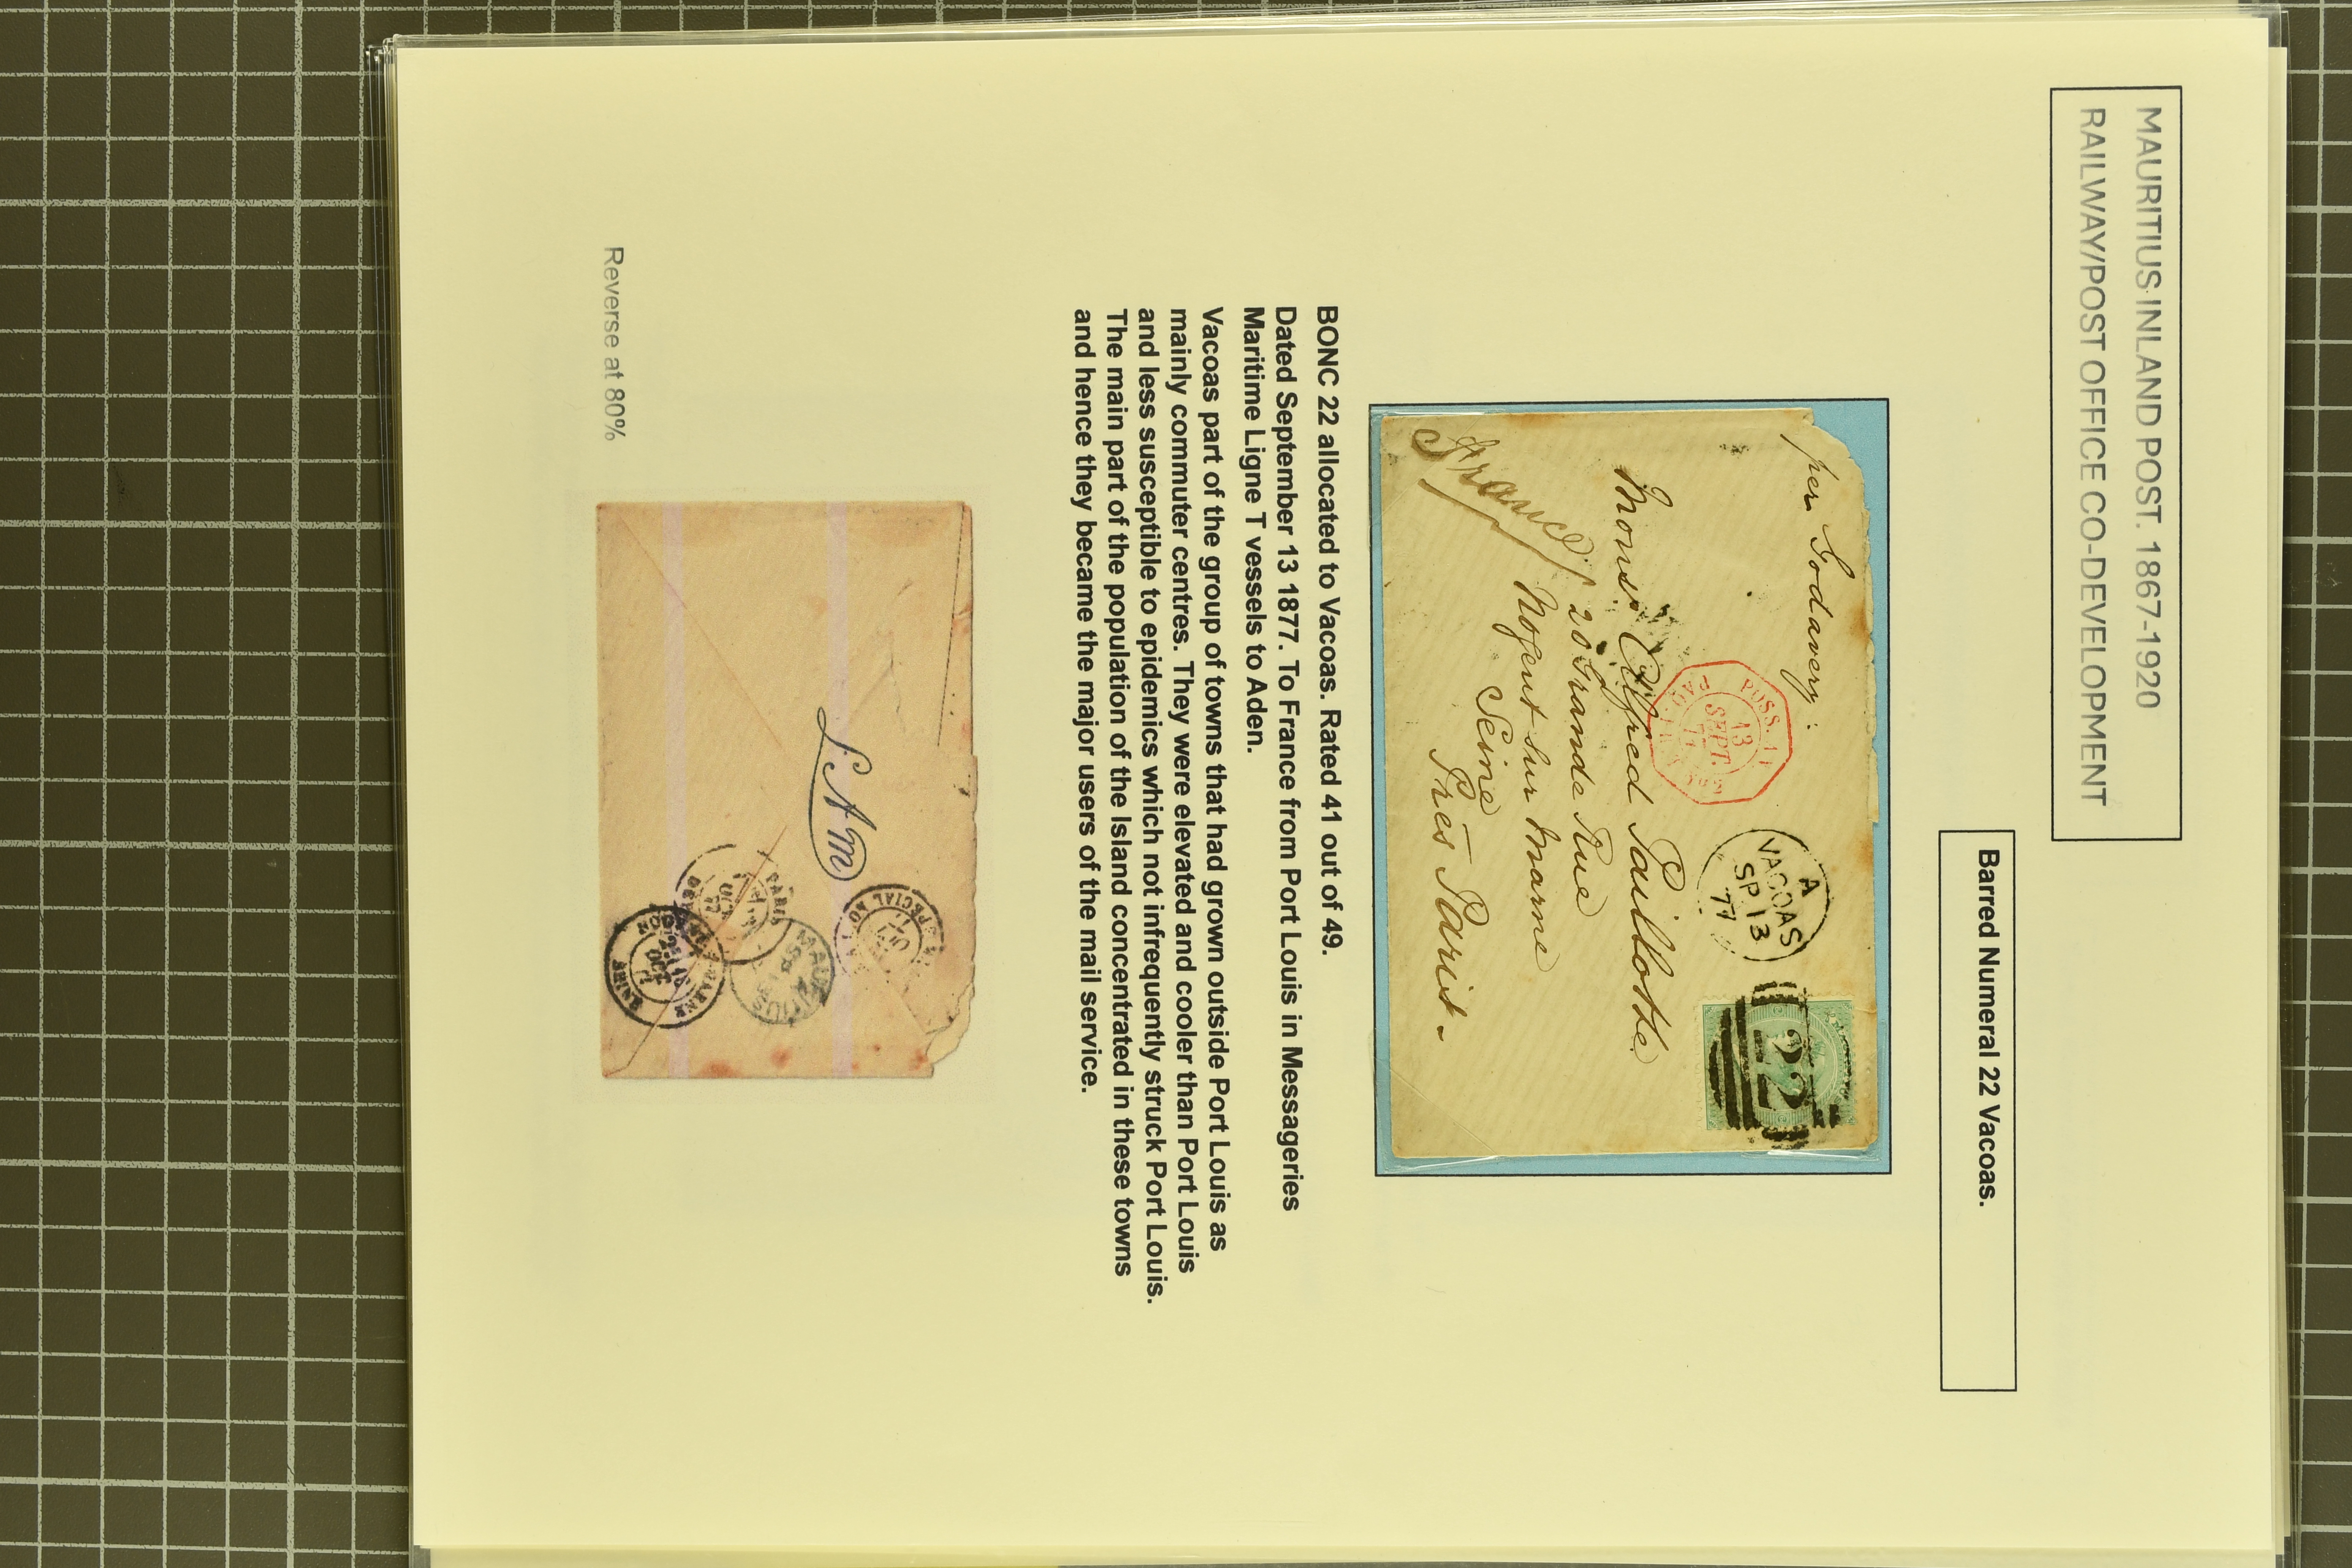 MAURITIUS INLAND POST. 1867-1920
RAILWAY/POST OFFICE CO-DEVELOPMENT
Barred Numeral 22 Vacoas.
per Godavery.
POSS.
13
SEPT.
A
VACOAS
SP 13
77
22
Monsr Alfred Paillothe
20 Grande Rue
Nogent sur Marne
Seine
Près Paris
France
BONC 22 allocated to Vacoas. Rated 41 out of 49.
Dated September 13 1877. To France from Port Louis in Messageries
Maritime Ligne T vessels to Aden.
Vacoas part of the group of towns that had grown outside Port Louis as
mainly commuter centres. They were elevated and cooler than Port Louis
and less susceptible to epidemics which not infrequently struck Port Louis.
The main part of the population of the Island concentrated in these towns
and hence they became the major users of the mail service.
MAURITIUS
PARIS
SEINE
Reverse at 80%